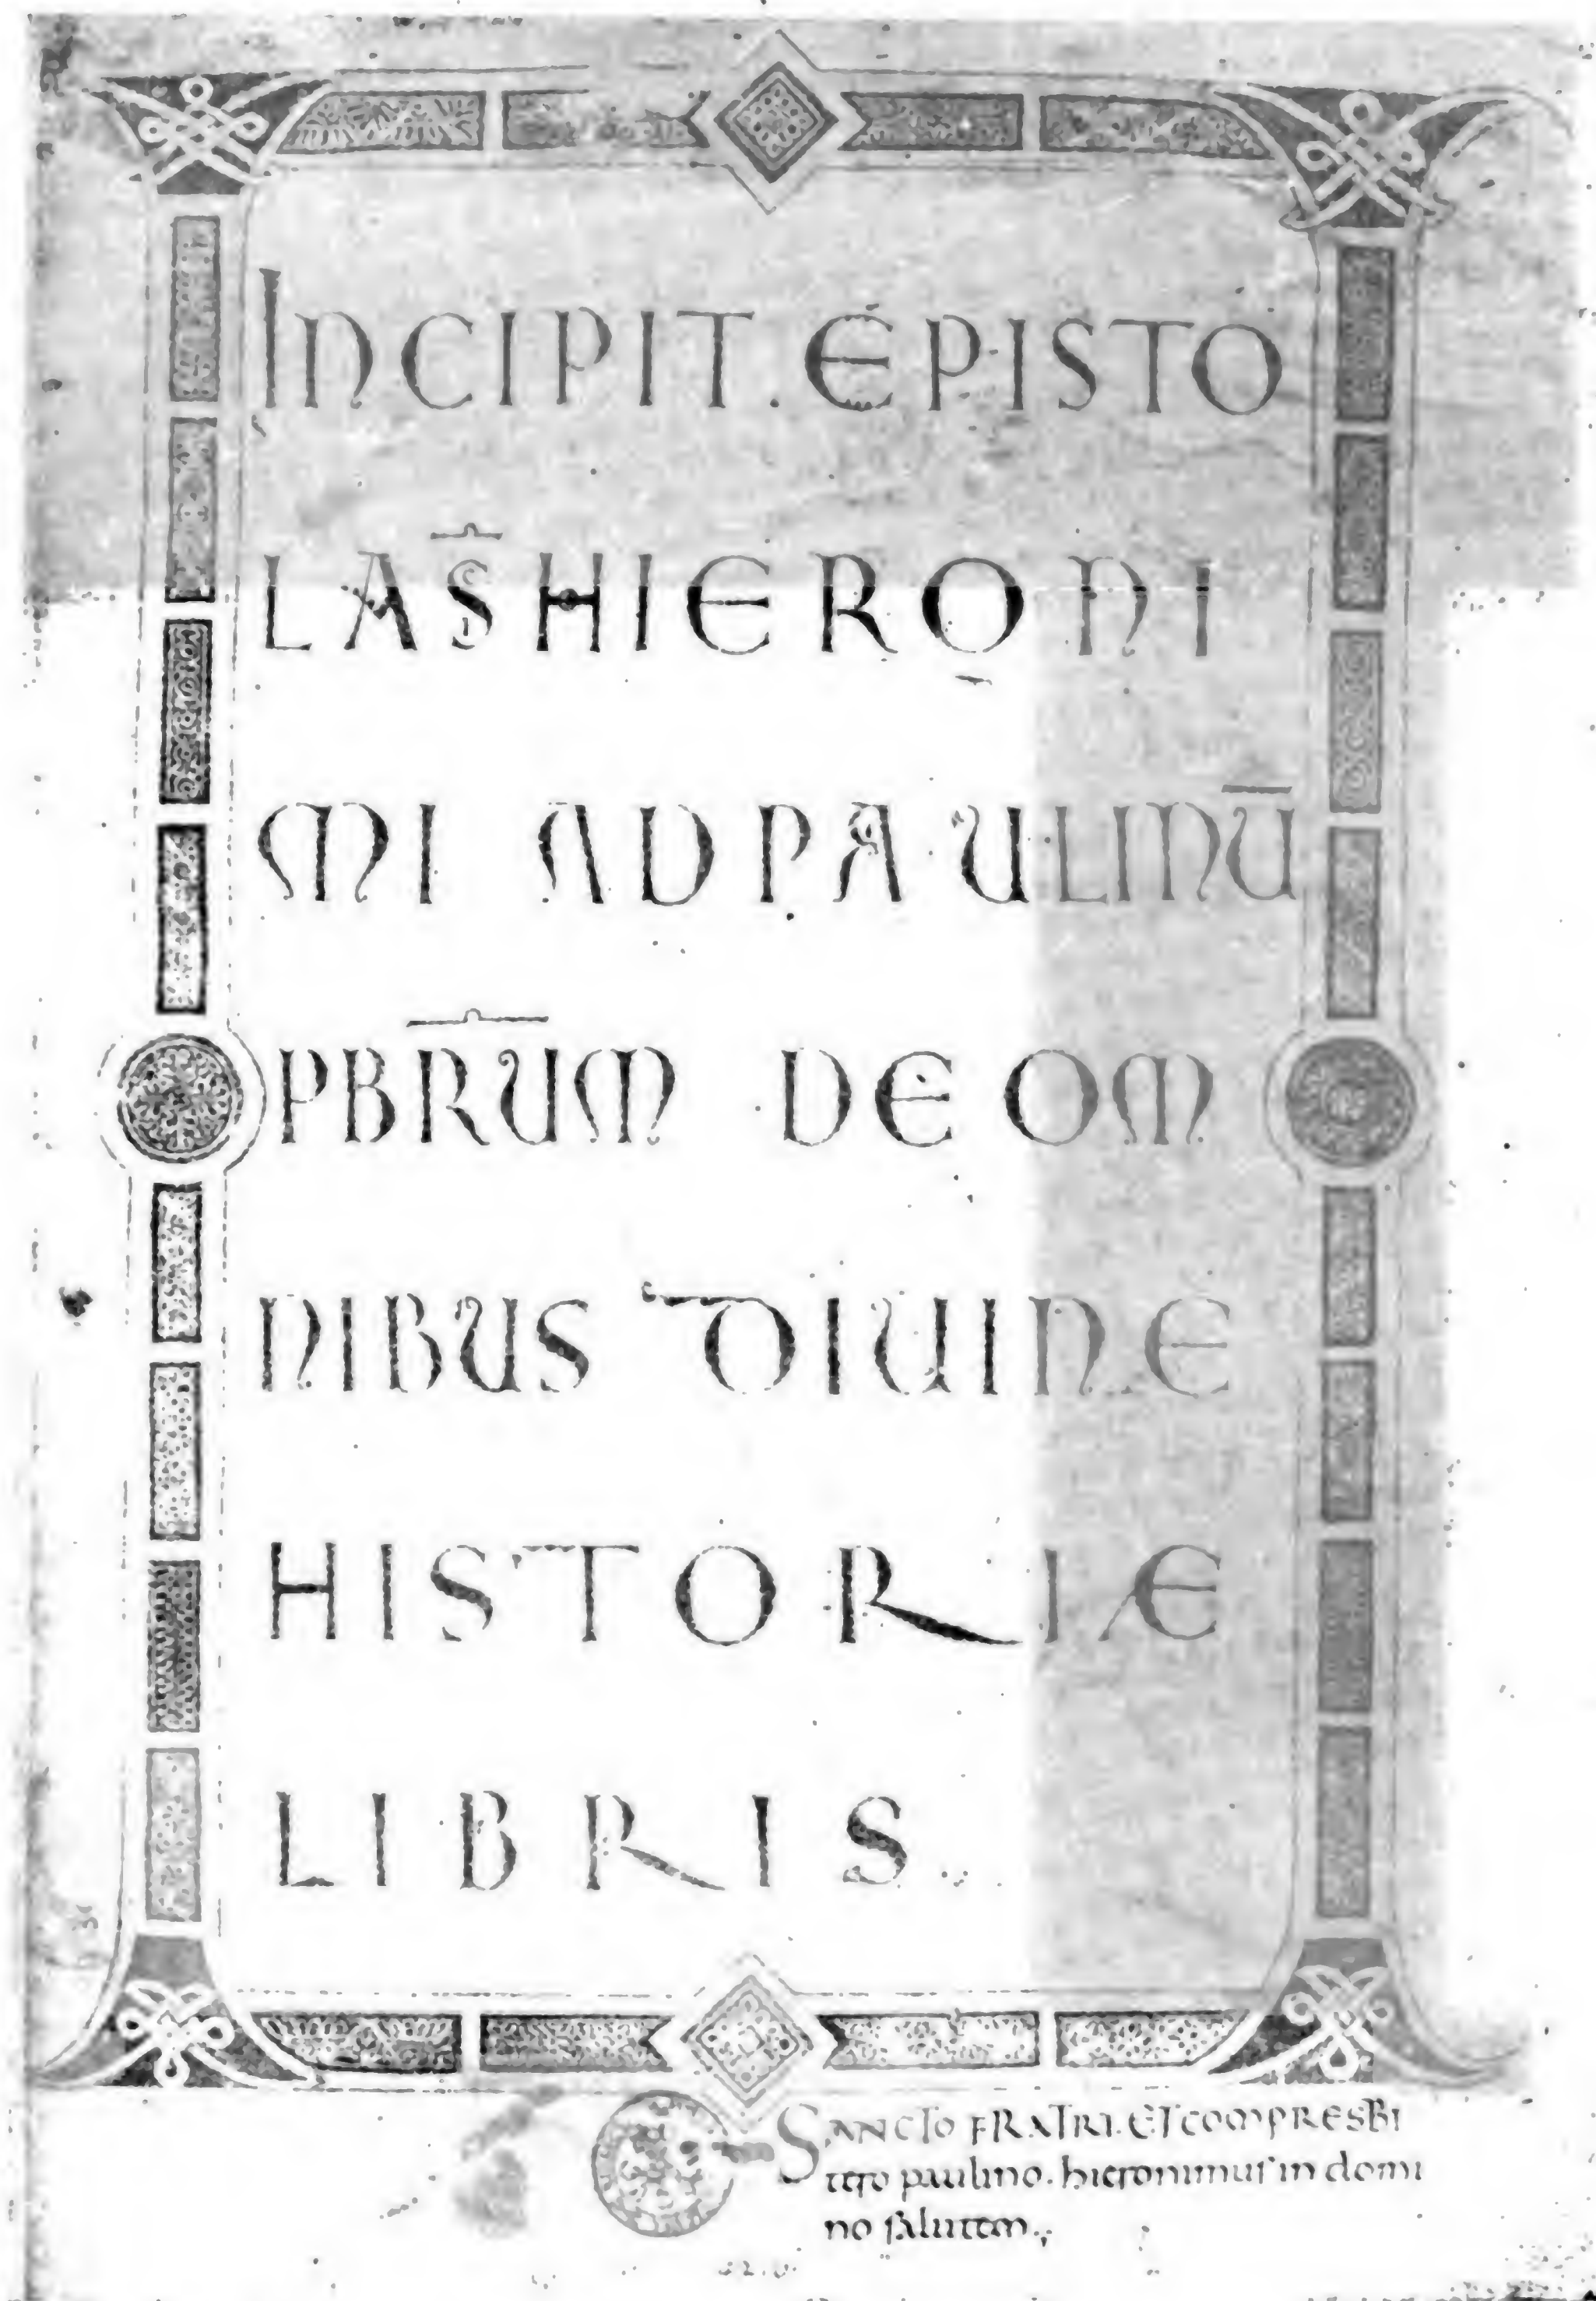 INCIPIT. EPISTO
LA S̄ HIERONI
MI AD PAULINŪ
PBR̄UM DE OM
NIBUS DIUINE
HISTORIÆ
LIBRIS
SANCTO FRATRI. ET COMPRESBI
tero paulino. hieronimus in domi
no salutem.,